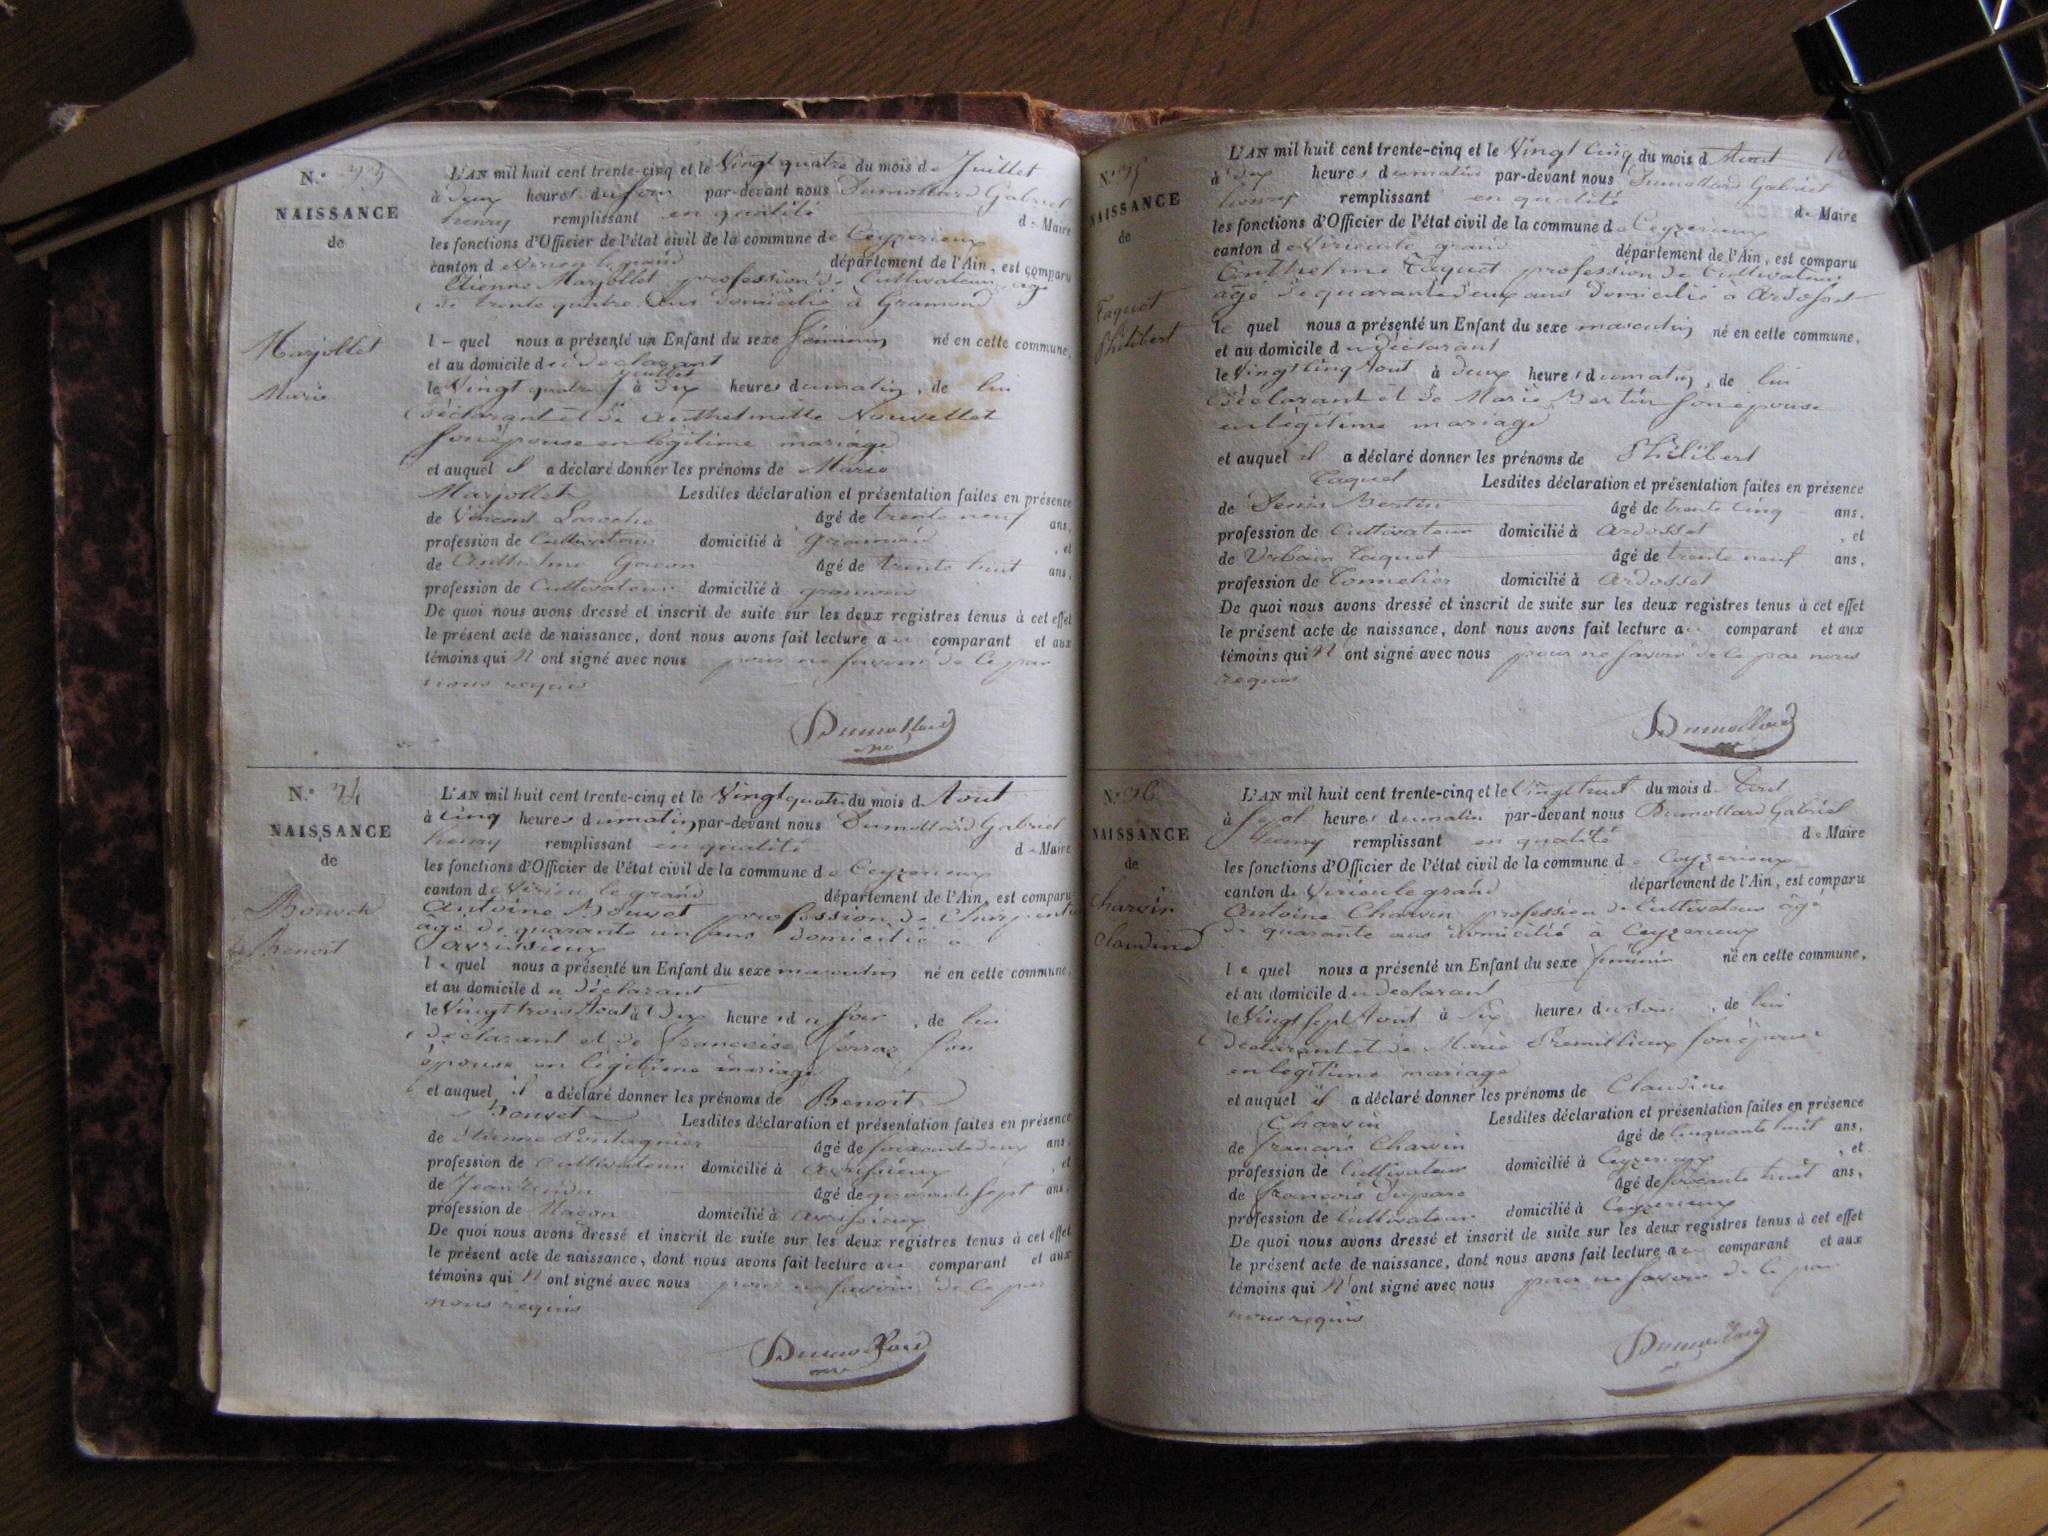 N.º 23
NAISSANCE
de
Marjollet
Marie
L'AN mil huit cent trente-cinq et le Vingt quatre du mois de Juillet
à Deux heures du soir par-devant nous Dumollard Gabriel
henry remplissant en qualité de Maire
les fonctions d'Officier de l'état civil de la commune de Ceyzerieux
canton de Virieu le grand département de l'Ain, est comparu
Etienne Marjollet profession de Cultivateur age
de trente quatre ans domicilié à Gramond
l- quel nous a présenté un Enfant du sexe féminin né en cette commune,
et au domicile du Déclarant
juillet
le Vingt quatre à dix heures du matin, de lui
déclarant et de Anthelmette Nouvellet
son épouse en légitime mariage
et auquel il a déclaré donner les prénoms de Marie
Marjollet Lesdites déclaration et présentation faites en présence
de Vincent Laroche âgé de trente neuf ans,
profession de Cultivateur domicilié à Gramond, et
de Anthelme Gacon âgé de trente huit ans,
profession de Cultivateur domicilié à gramond
De quoi nous avons dressé et inscrit de suite sur les deux registres tenus à cet effet
le présent acte de naissance, dont nous avons fait lecture au comparant et aux
témoins qui N ont signé avec nous pour ne savoir de ce par
nous requis
Dumollard
N.º 24
NAISSANCE
de
Bouvet
Benoit
L'AN mil huit cent trente-cinq et le Vingt quatre du mois d Aout
à Cinq heures du matin par-devant nous Dumollard Gabriel
henry remplissant en qualité de Maire
les fonctions d'Officier de l'état civil de la commune de Ceyzerieux
canton de Virieu le grand département de l'Ain, est comparu
Antoine Bouvet profession de Charpentier
âgé de quarante un ans domicilié a
Avrissieux
le quel nous a présenté un Enfant du sexe masculin né en cette commune,
et au domicile du déclarant
le Vingt trois Aout à Dix heures du soir, de lui
déclarant et de françoise ferraz son
épouse en légitime mariage
et auquel il a déclaré donner les prénoms de Benoit
Bouvet Lesdites déclaration et présentation faites en présence
de Etienne Pontagnier âgé de soixante deux ans,
profession de Cultivateur domicilié à avrissieux, et
de Jean âgé de quarante sept ans,
profession de Maçon domicilié à avrissieux
De quoi nous avons dressé et inscrit de suite sur les deux registres tenus à cet effet
le présent acte de naissance, dont nous avons fait lecture au comparant et aux
témoins qui N ont signé avec nous pour ne savoir de ce par
nous requis
Dumollard
N.º 25
NAISSANCE
de
Taquet
Philibert
L'AN mil huit cent trente-cinq et le Vingt Cinq du mois d Aout
à dix heures du matin par-devant nous Dumollard Gabriel
henry remplissant en qualité de Maire
les fonctions d'Officier de l'état civil de la commune de Ceyzerieux
canton de Virieu le grand département de l'Ain, est comparu
Anthelme Taquet profession de Cultivateur
âgé de quarante deux ans domicilié à Ardosset
le quel nous a présenté un Enfant du sexe masculin né en cette commune,
et au domicile du déclarant
le Vingt Cinq Aout à deux heures du matin, de lui
déclarant et de Marie Bertin son épouse
en légitime mariage
et auquel il a déclaré donner les prénoms de Philibert
Taquet Lesdites déclaration et présentation faites en présence
de Denis Bertin âgé de trente Cinq ans,
profession de Cultivateur domicilié à Ardosset, et
de Urbain Taquet âgé de trente neuf ans,
profession de Tonnelier domicilié à Ardosset
De quoi nous avons dressé et inscrit de suite sur les deux registres tenus à cet effet
le présent acte de naissance, dont nous avons fait lecture au comparant et aux
témoins qui N ont signé avec nous pour ne savoir de ce par nous
requis
Dumollard
N.º 26
NAISSANCE
de
Charvin
Claudine
L'AN mil huit cent trente-cinq et le Vingt huit du mois d Aout
à Sept heures du matin par-devant nous Dumollard Gabriel
henry remplissant en qualité de Maire
les fonctions d'Officier de l'état civil de la commune de Ceyzerieux
canton de Virieu le grand département de l'Ain, est comparu
Antoine Charvin profession de Cultivateur âgé
de quarante ans domicilié a Ceyzerieux
le quel nous a présenté un Enfant du sexe féminin né en cette commune,
et au domicile du declarant
le Vingt Sept Aout à Six heures du Soir, de lui
declarant et de Marie Premillieux son épouse
en légitime mariage
et auquel il a déclaré donner les prénoms de Claudine
Charvin Lesdites déclaration et présentation faites en présence
de françois Charvin âgé de Cinquante huit ans,
profession de Cultivateur domicilié à Ceyzerieux, et
de françois Dupare âgé de soixante huit ans,
profession de Cultivateur domicilié à Ceyzerieux
De quoi nous avons dressé et inscrit de suite sur les deux registres tenus à cet effet
le présent acte de naissance, dont nous avons fait lecture au comparant et aux
témoins qui N ont signé avec nous pour ne savoir de ce par
nous requis
Dumollard